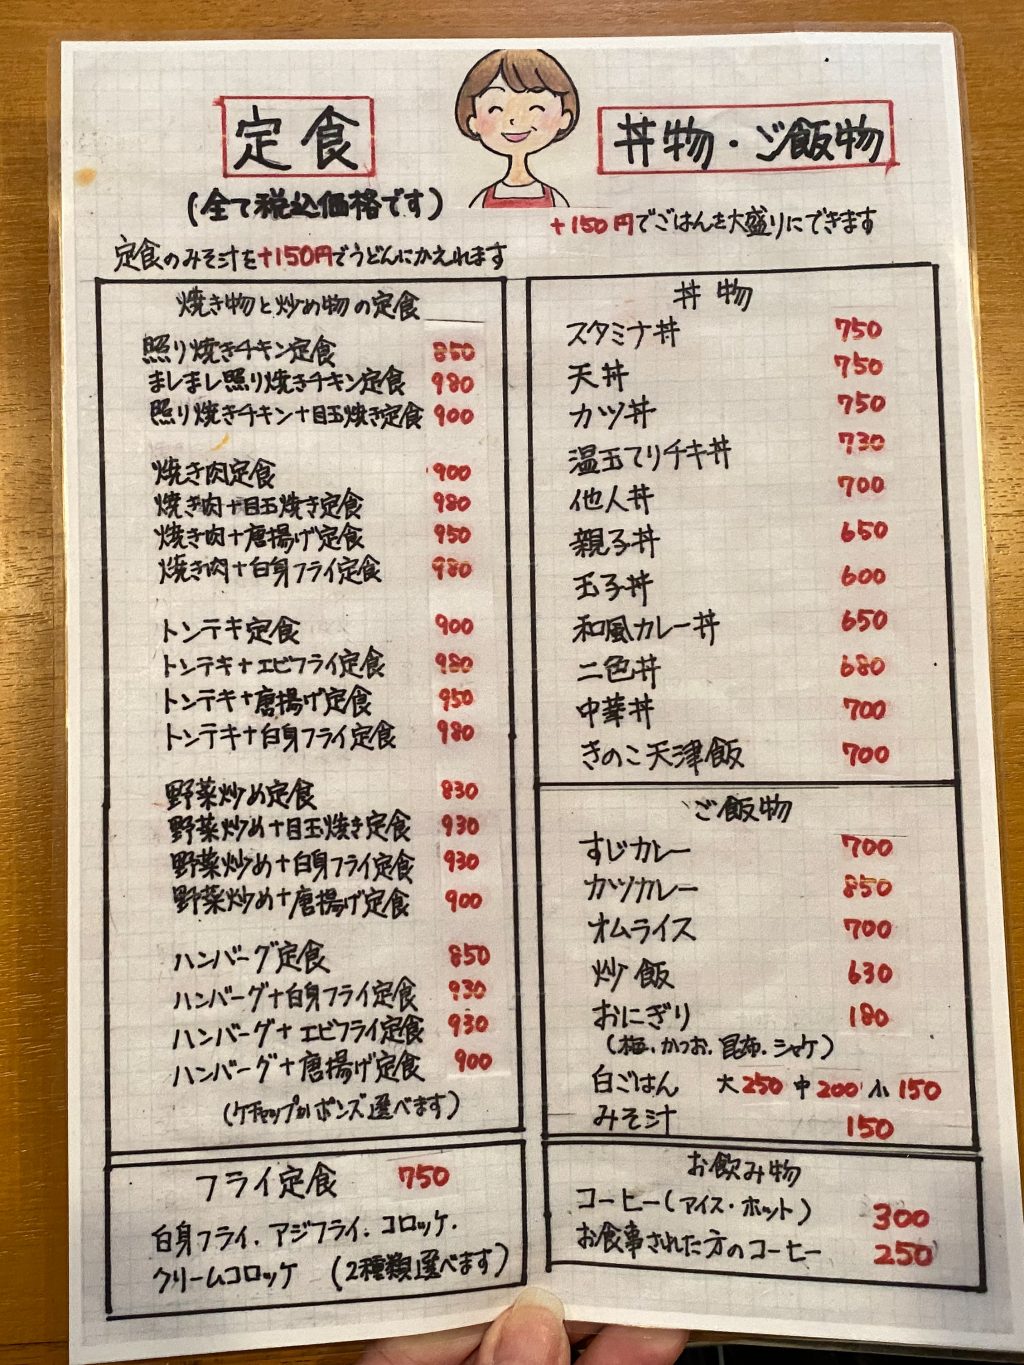 定食
(全て税込価格です)
定食のみそ汁を+150円でうどんにかえれます
焼き物と炒め物の定食
照り焼きチキン定食 850
ましまし照り焼きチキン定食 980
照り焼きチキン+目玉焼き定食 900
焼き肉定食 900
焼き肉+目玉焼き定食 980
焼き肉+唐揚げ定食 950
焼き肉+白身フライ定食 980
トンテキ定食 900
トンテキ+エビフライ定食 980
トンテキ+唐揚げ定食 950
トンテキ+白身フライ定食 980
野菜炒め定食 830
野菜炒め+目玉焼き定食 930
野菜炒め+白身フライ定食 930
野菜炒め+唐揚げ定食 900
ハンバーグ定食 850
ハンバーグ+白身フライ定食 930
ハンバーグ+エビフライ定食 930
ハンバーグ+唐揚げ定食 900
(ケチャップかポンズ選べます)
フライ定食 750
白身フライ.アジフライ.コロッケ.
クリームコロッケ (2種類選べます)
丼物・ご飯物
+150円でごはんを大盛りにできます
丼物
スタミナ丼 750
天丼 750
カツ丼 750
温玉てりチキ丼 730
他人丼 700
親子丼 650
玉子丼 600
和風カレー丼 650
二色丼 680
中華丼 700
きのこ天津飯 700
ご飯物
すじカレー 700
カツカレー 850
オムライス 700
炒飯 630
おにぎり 180
(梅.かつお.昆布.シャケ)
白ごはん 大250 中200 小150
みそ汁 150
お飲み物
コーヒー(アイス・ホット) 300
お食事された方のコーヒー 250